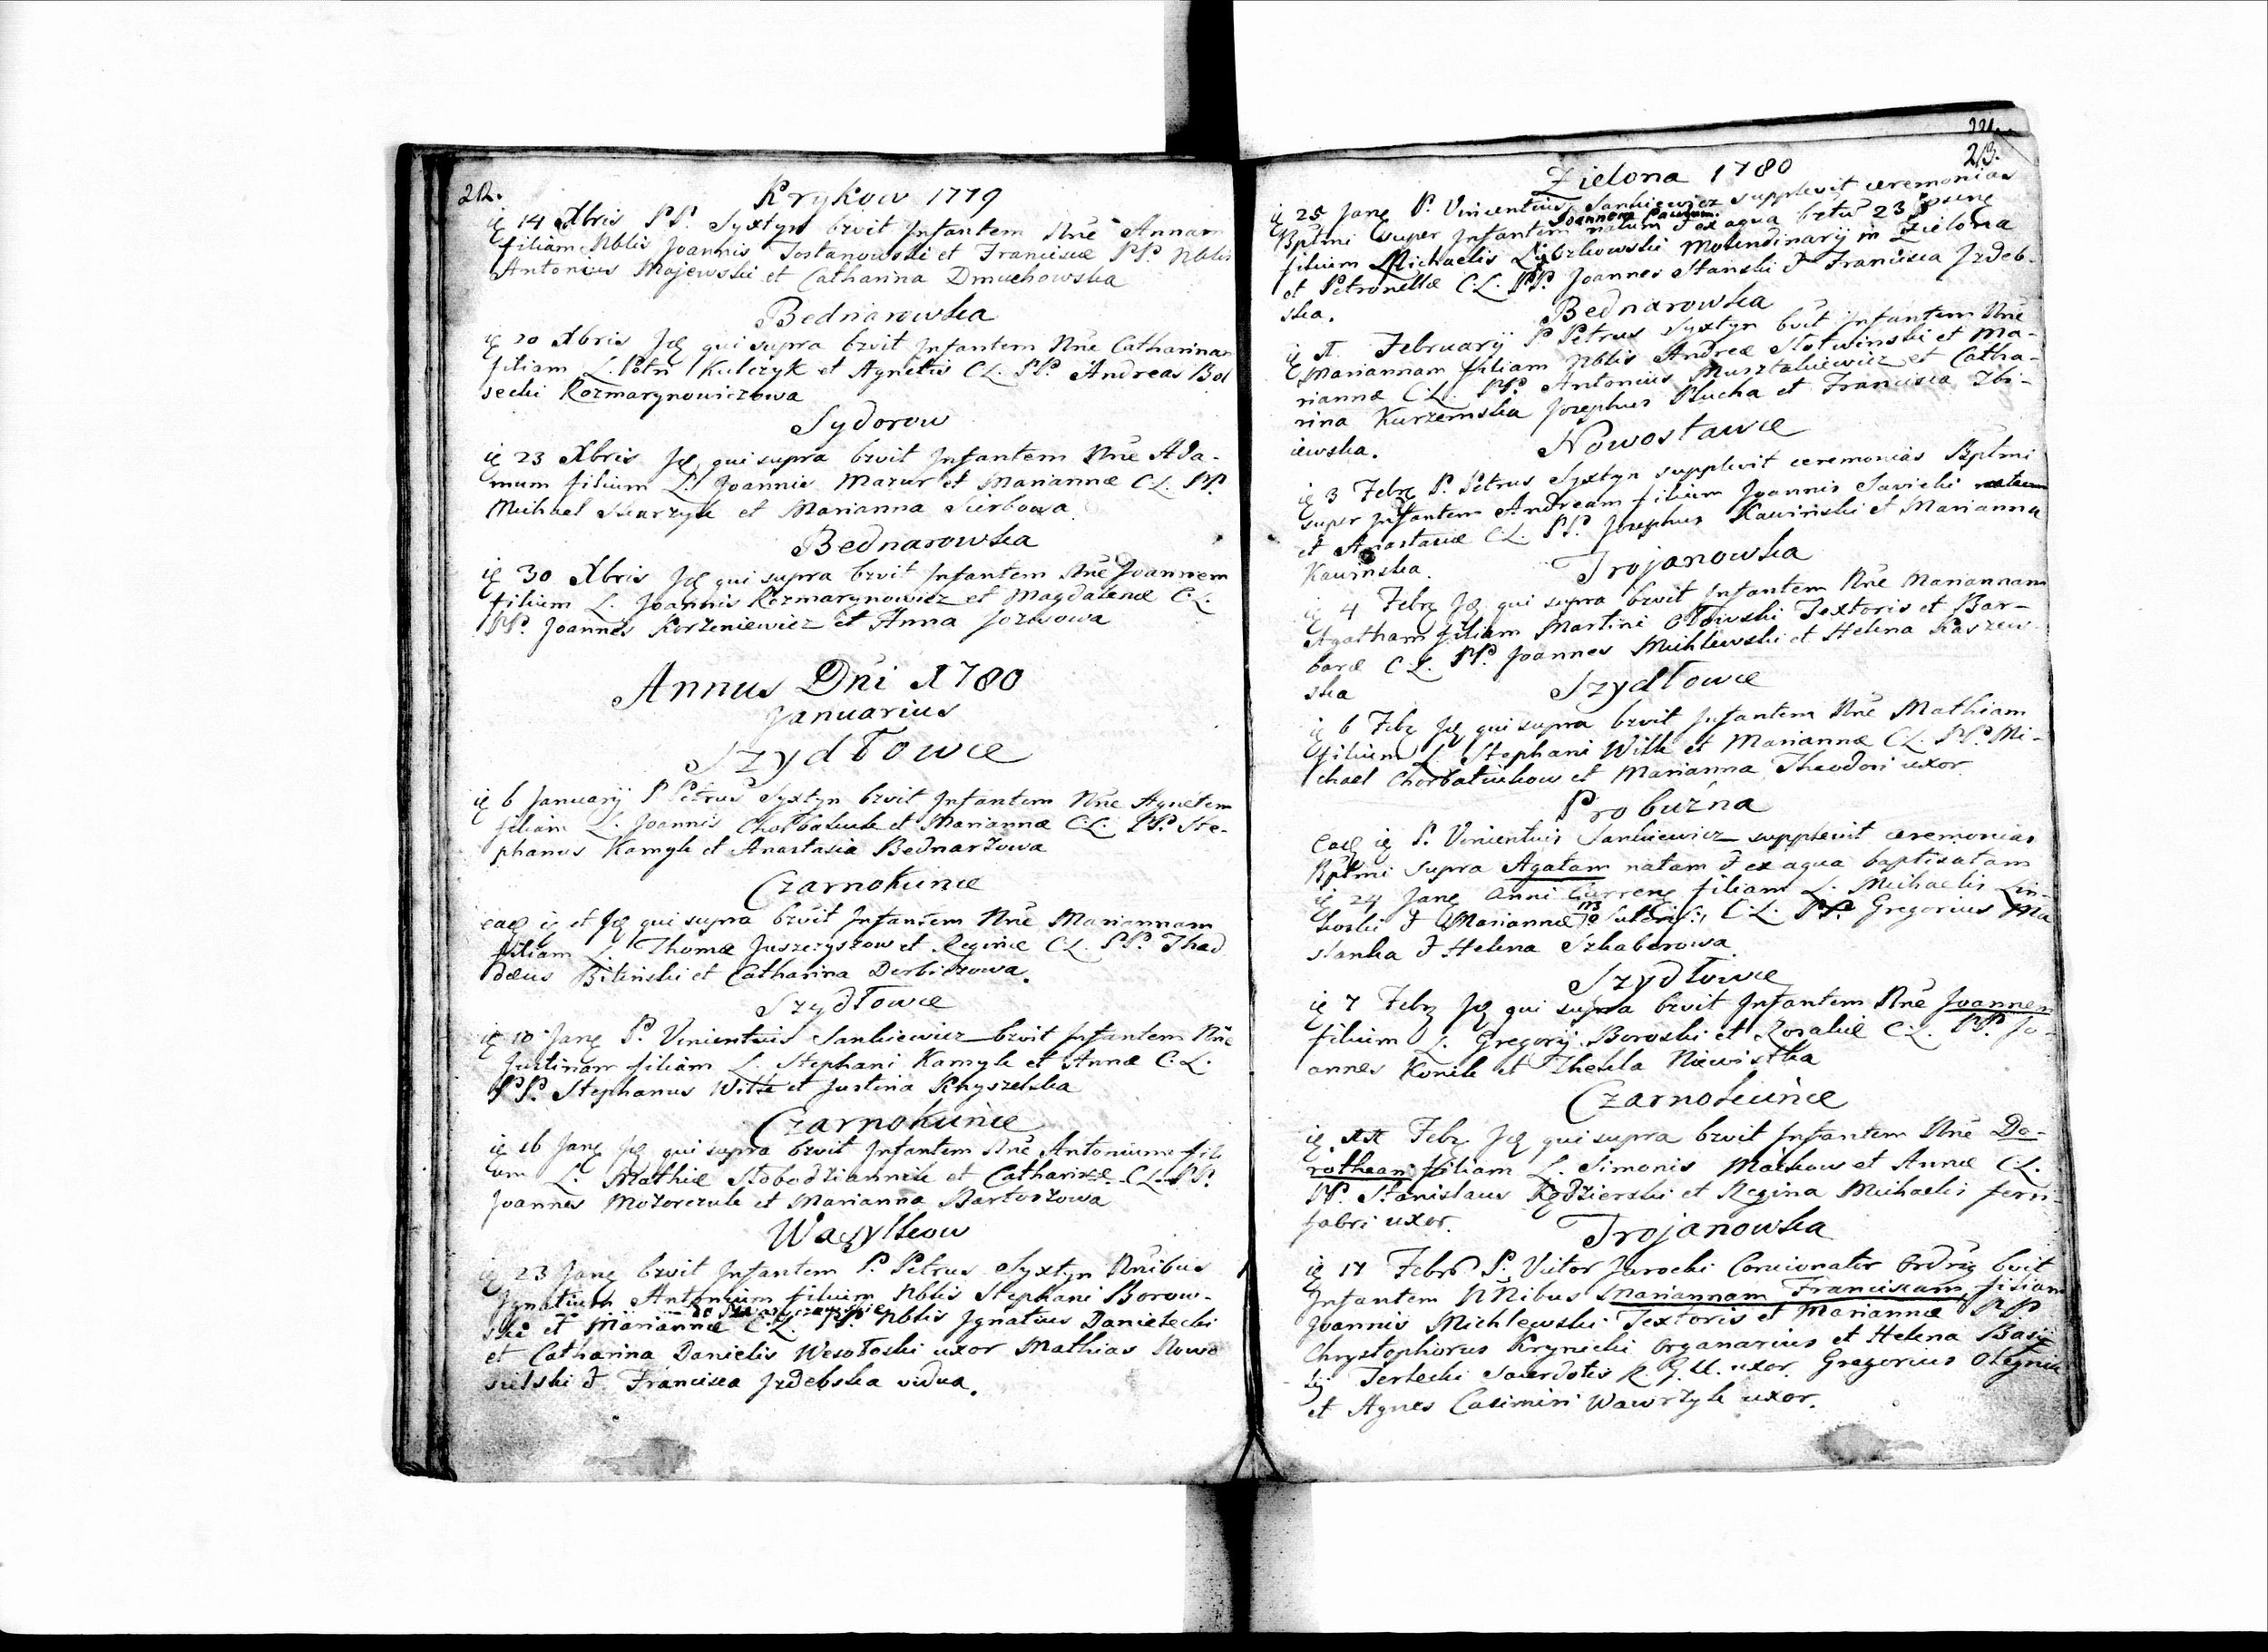 212.
Krykow 1779
ię 14 Xbris PP. Syxtyn bzvit Infantem Nne Annam
filiam Nblis Joannis Tostanowski et Franciscæ PP. Nblis
Antonius Majewski et Catharina Dmuchowska
Bednarowska
ię 20 Xbris Ję qui supra bzvit Infantem Nne Catharinam
filiam L. Petri Kulczyk et Agnetis CL. PP. Andreas Bol
secki Rozmarynowiczowa
Sydorow
ię 23 Xbris Ję qui supra bzvit Infantem Nne Ada-
mum filium L. Joannis Mazur et Mariannæ C.L. PP.
Michael Skarzyk et Marianna Sierbowa
Bednarowska
ię 30 Xbris Ję qui supra bzvit Infantem Nne Joannem
filium L. Joannis Rozmarynowicz et Magdalenæ C.L.
PP. Joannes Korzeniewicz et Anna Jozwowa
Annus Dni 1780
Januarius
Szydłowce
ię 6 Januarij P Petrus Syxtyn bzvit Infantem Nne Agnetem
filiam L. Joannis Chorbatiuk et Mariannæ C.L. PP. Ste-
phanus Kamyk et Anastasia Bednarzowa
Czarnokunce
eaę ię et Ję qui supra bzvit Infantem Nne Mariannam
filiam L. Thomæ Juszczyszow et Reginæ CL. PP. Thad
dæus Bilinski et Catharina Derbiszowa.
Szydłowce
ię 10 Janę P. Vincentius Sankiewicz bzvit Infantem Nne
Justinam filiam L. Stephani Kamyk et Annæ C.L.
PP. Stephanus Witk et Justina Khyszelska
Czarnokunce
ię 16 Janę Ję qui supra bzvit Infantem Nne Antonium fili
um L. Mathiæ Słobodziannik et Catharinæ C.L. PP.
Joannes Mozorczuk et Marianna Bartoszowa
Wasylkow
ię 23 Janę bzvit Infantem P. Petrus Syxtyn Nnibus
Ignatium Antonium filium Nblis Stephani Borow-
ski et Mariannæ C.L. PP. Nblis Ignatius Danielecki
et Catharina Danielis Wesołoski uxor Mathias Nowo
sielski & Francisca Jzdebska vidua.
213.
Zielona 1780
ię 25 Janę P. Vincentius Sankiewicz supplevit ceremonias
Joannem Paulum
Bptmi super Infantem natum & ex aqua bztu 23
filium Michaelis molendinarij in Zielona
et Petronellæ C.L. PP. Joannes Stanski & Francisca Jzdeb-
ska.
Bednarowska
ię 1. Februarij P Petrus Syxtyn bvit Infantem Nne
Mariannam filiam Nblis Andreæ Słotwinski et Ma-
riannæ C.L. PP. Antonius Musztakiewicz et Catha-
rina Kurzemska Josephus Plucha et Francisca Zbi-
iewska.
Nowostawce
ię 3 Febrę P. Petrus Syxtyn supplevit ceremonias Bptmi
super Infantem Andream filium Joannis Savicki
et Anastasiæ CL. PP. Josephus Kawinski et Marianna
Kawinska.
Trojanowka
ię 4 Febrę Ję qui supra bzvit Infantem Nne Mariannam
Agatham filiam Martini Ołowski Textoris et Bar-
baræ C.L. PP. Joannes Michlewski et Helena Kaszew-
ska
Szydłowce
ię 6 Febę Ję qui supra bzvit Infantem Nne Mathiam
filium L. Stephani Witk et Mariannæ C.L. PP. Mi-
chael Chorbatiukow et Marianna Theodori uxor
Probuzna
Eaę ię P. Vincentius Sankiewicz supplevit ceremonias
Bptmi supra Agatam natam & ex aqua baptisatam
ię 24 Janę Anni Currenę filiam L. Michaelis Lin-
koski & Mariannæ C.L. PP. Gregorius Ma
slanka & Helena Szkaberowa
Szydłowce
ię 7 Febrę Ję qui supra bzvit Infantem Nne Joannem
filium L. Gregorij Boroski et Rosaliæ C.L. PP. Jo-
annes Konik et Thekla Niewistka
Czarnokunce
ię 11 Febrę Ję qui supra bzvit Infantem Nne Do-
rotheam filiam L. Simonis Mackow et Annæ C.L.
PP. Stanislaus Kędzierski et Regina Michaelis ferri-
fabri uxor.
Trojanowka
ię 17 Febrę P. Victor Jarocki Concionator Ordrię bvit
Infantem NNibus Mariannam Franciscam filiam
Joannis Michlewski Textoris et Mariannæ PP
Chrystophorus Krynicki Organarius et Helena Basi
lij Terlecki Sacerdotis R. G. U. uxor. Gregorius
et Agnes Casimiri Wawrzyk uxor.